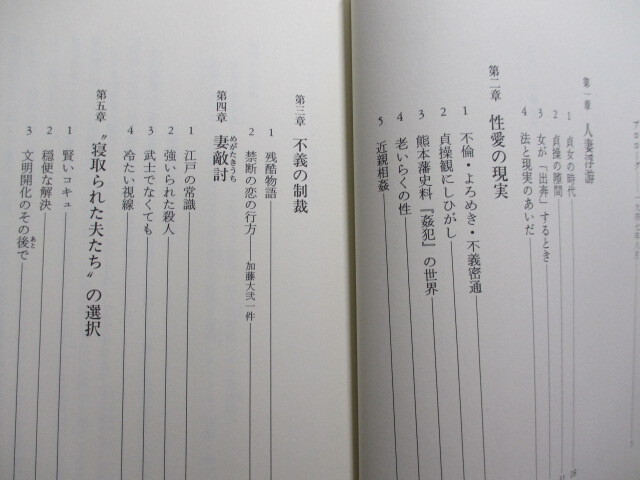 第一章 人妻浮游
1 貞女の時代
2 貞操の隙間
3 女が「出奔」するとき
4 法と現実のあいだ
第二章 性愛の現実
1 不倫・よろめき・不義密通
2 貞操観にしひがし
3 熊本藩史料『姦犯』の世界
4 老いらくの性
5 近親相姦
第三章 不義の制裁
1 残酷物語
2 禁断の恋の行方――加藤大弐一件
第四章 妻敵討
めがたきうち
1 江戸の常識
2 強いられた殺人
3 武士でなくても
4 冷たい視線
第五章 〝寝取られた夫たち〟の選択
1 賢いコキュ
2 穏便な解決
3 文明開化のその後で
あと